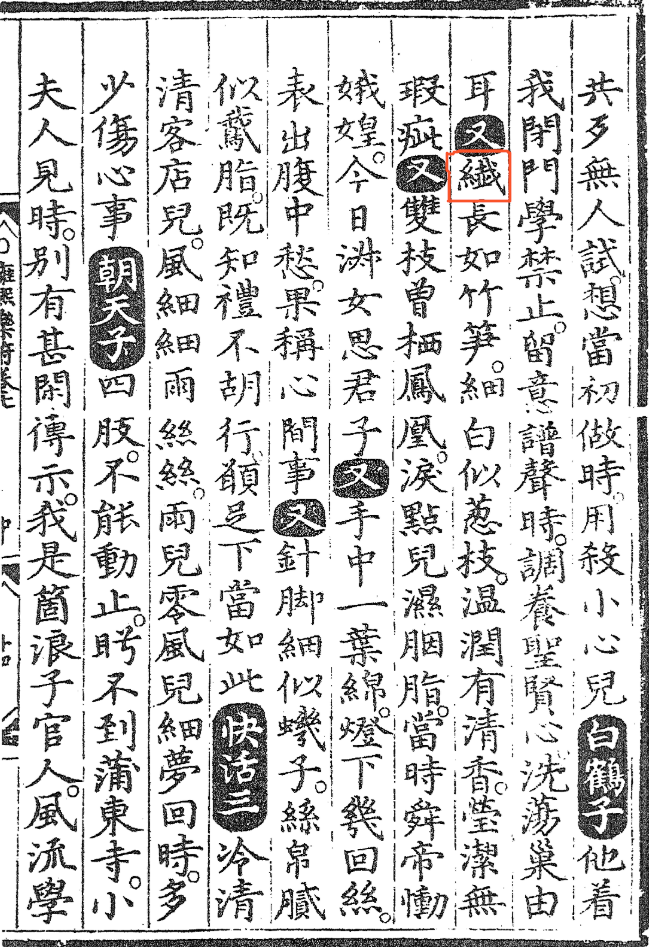 共歹無人試。想當初做時。用殺小心兒白鶴子他着
我閉門學禁止。留意譜聲時。調養聖賢心。洗蕩巢由
耳又纖長如竹笋。細白似葱枝。温潤有清香。瑩潔無
瑕疵又雙枝曾栖鳳凰。淚點兒濕胭脂。當時舜帝慟
娥媓。今日淋女思君子又手中一葉綿。燈下幾回絲。
表出腹中愁。果稱心間事又針脚細似蟣子。絲帛膩
似鵞脂。既知禮不胡行。願足下當如此快活三冷清
清客店兒。風細細雨絲絲。雨兒零風兒細夢回時。多
少傷心事朝天子四肢。不能動止。盻不到蒲東寺。小
夫人見時。别有甚閑傳示。我是箇浪子官人。風流學
雍熈樂府卷七